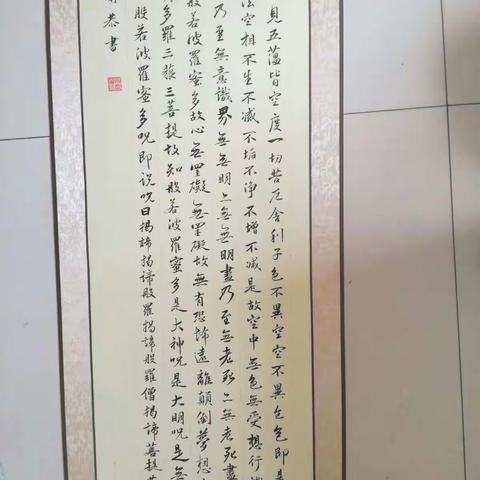 見五蘊皆空度一切苦厄舍利子色不異空空不異色色即是
法空相不生不滅不垢不净不增不減是故空中無色無受想行
乃至無意識界無無明亦無無明盡乃至無老死亦無老死盡
般若波羅蜜多故心無罣礙無罣礙故無有恐怖遠離顛倒夢想
多羅三藐三菩提故知般若波羅蜜多是大神呪是大明呪是無
般若波羅蜜多呪即说呪曰揭諦揭諦般羅揭諦般羅僧揭諦菩提
恭書